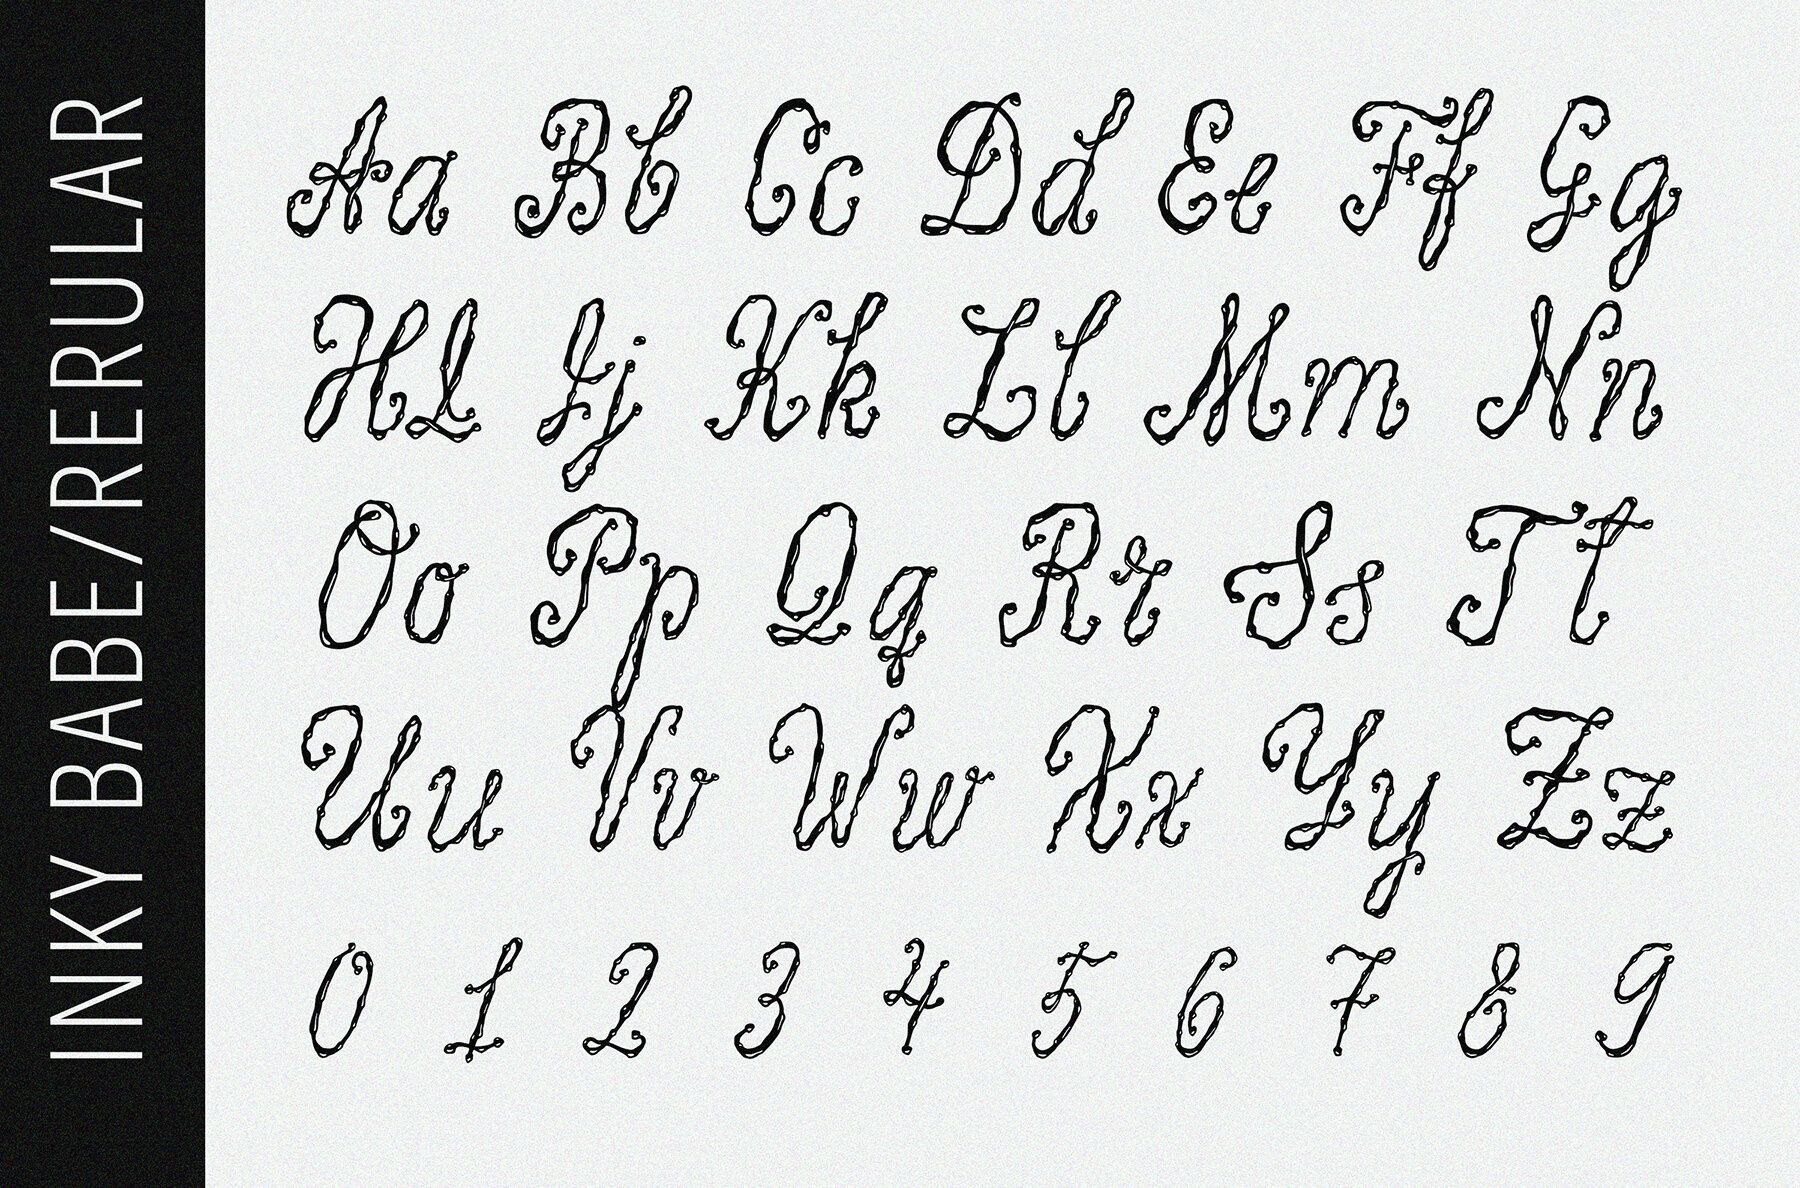 INKY BABE/RERULAR
Aa Bb Cc Dd Ee Ff Gg
HI Jj Kk Ll Mm Nn
Oo Pp Qq Rr Ss Tt
Uu Vv Ww Xx Yy Zz
0 1 2 3 4 5 6 7 8 9